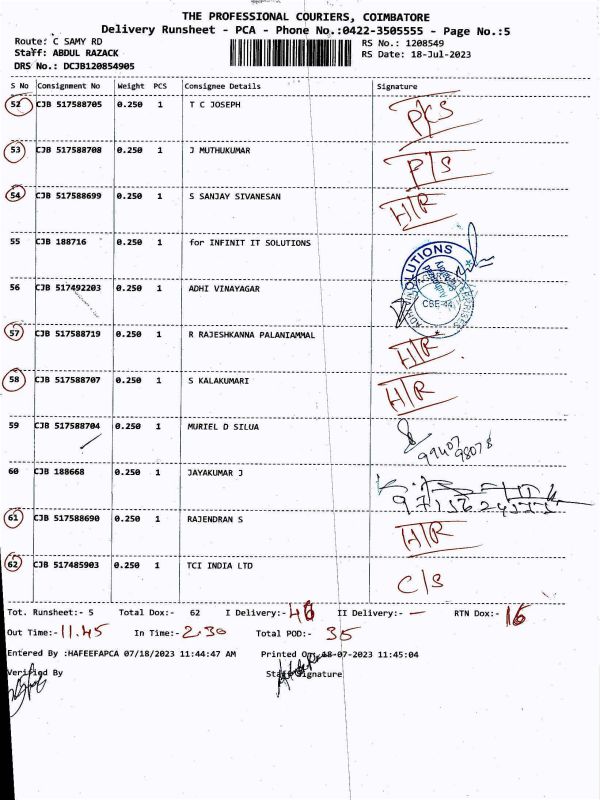 THE PROFESSIONAL COURIERS, COIMBATORE
Delivery Runsheet - PCA - Phone No.:0422-3505555 - Page No.:5
Route: C SAMY RD RS No.: 1208549
Staff: ABDUL RAZACK RS Date: 18-Jul-2023
DRS No.: DCJB120854905
S No Consignment No Weight PCS Consignee Details Signature
52 CJB 517588705 0.250 1 T C JOSEPH PKS
53 CJB 517588708 0.250 1 J MUTHUKUMAR P/S
54 CJB 517588699 0.250 1 S SANJAY SIVANESAN H/R
55 CJB 188716 0.250 1 for INFINIT IT SOLUTIONS
56 CJB 517492203 0.250 1 ADHI VINAYAGAR
57 CJB 517588719 0.250 1 R RAJESHKANNA PALANIAMMAL H/R
58 CJB 517588707 0.250 1 S KALAKUMARI H/R
59 CJB 517588704 0.250 1 MURIEL D SILUA 99407 98078
60 CJB 188668 0.250 1 JAYAKUMAR J
61 CJB 517588690 0.250 1 RAJENDRAN S H/R
62 CJB 517485903 0.250 1 TCI INDIA LTD C/S
Tot. Runsheet:- 5 Total Dox:- 62 I Delivery:- 46 II Delivery:- — RTN Dox:- 16
Out Time:- 11.45 In Time:- 2.30 Total POD:- 35
Entered By :HAFEEFAPCA 07/18/2023 11:44:47 AM Printed On: 18-07-2023 11:45:04
Verified By Staff Signature